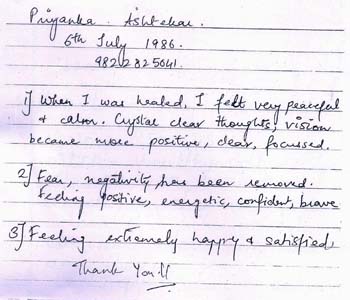 Priyanka. Ashtekar.
6th July 1986.
9822825041.
1] When I was healed, I felt very peaceful
& calm. Crystal clear thoughts, vision
became more positive, clear, focussed.
2] Fear, negativity, has been removed.
Feeling positive, energetic, confident, brave
3] Feeling extremely happy & satisfied,
Thank You!!